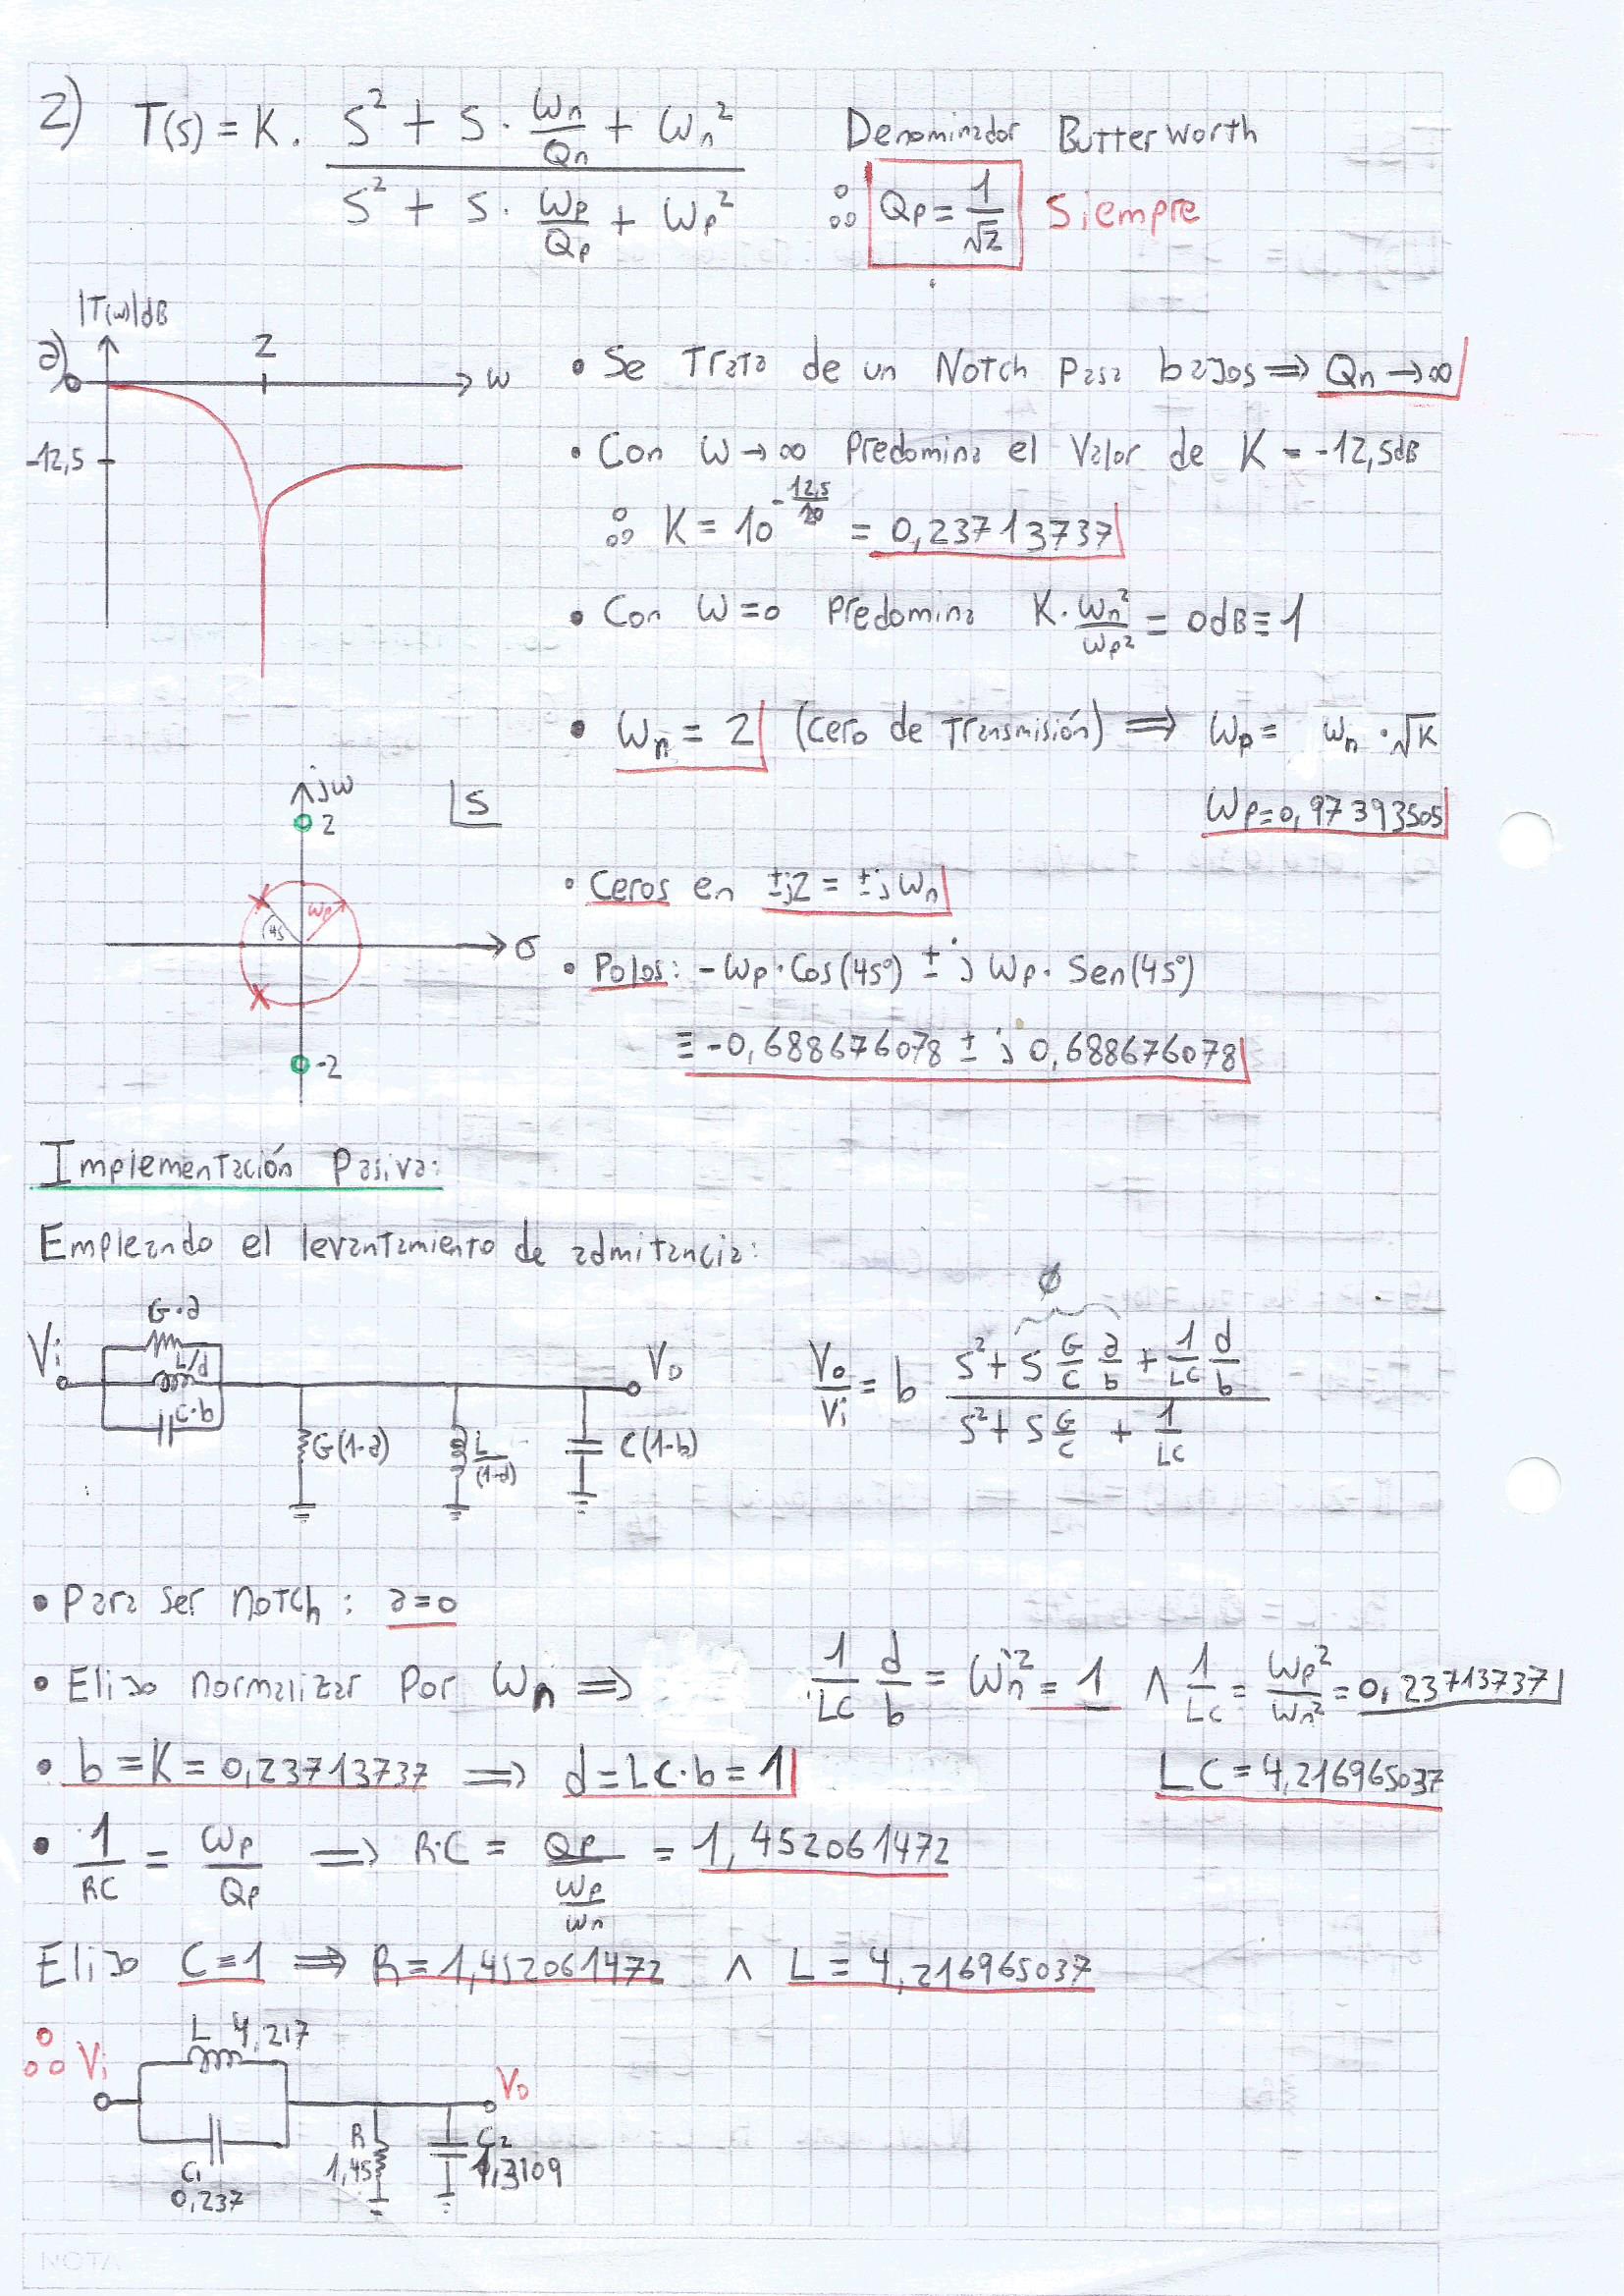 2) T(s) = K. (S² + S · ωn/Qn + ωn²) / (S² + S · ωp/Qp + ωp²)
Denominador Butterworth
∴ Qp = 1/√2 Siempre
a)
|T(ω)|dB
2
ω
-12,5
• Se trata de un Notch pasa bajos ⇒ Qn → ∞
• Con ω → ∞ Predomina el valor de K = -12,5dB
∴ K = 10^(-12,5/20) = 0,23713737
• Con ω = 0 Predomina K · ωn²/ωp² = 0dB ≡ 1
• ωn = 2 (cero de transmisión) ⇒ ωp = ωn · √K
ωp = 0,97393505
jω
S
2
ωp
45
σ
-2
• Ceros en ±j2 = ±jωn
• Polos: -ωp · Cos(45°) ± j ωp · Sen(45°)
≡ -0,688676078 ± j 0,688676078
Implementación Pasiva:
Empleando el levantamiento de admitancia:
Vi
G·a
L/d
C·b
Vo
G(1-a)
L/(1-d)
C(1-b)
Ø
Vo/Vi = b (S² + S G/C a/b + 1/LC d/b) / (S² + S G/C + 1/LC)
• Para ser notch: a=0
• Elijo normalizar por ωn ⇒ 1/LC d/b = ωn² = 1 ∧ 1/LC = ωp²/ωn² = 0,23713737
• b = K = 0,23713737 ⇒ d = LC·b = 1
LC = 4,216965037
• 1/RC = ωp/Qp ⇒ R·C = Qp/(ωp/ωn) = 1,452061472
Elijo C = 1 ⇒ R = 1,452061472 ∧ L = 4,216965037
∴ Vi
L 4,217
C1
0,237
R
1,45
C2
Vo